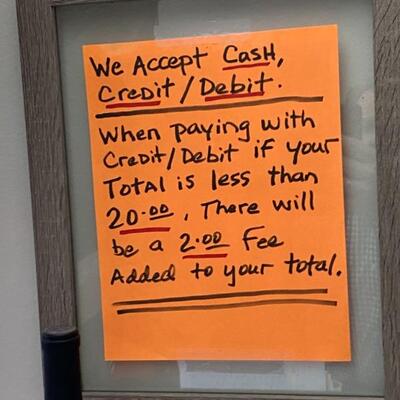 We Accept Cash,
Credit/Debit.
When paying with
Credit/Debit if your
Total is less than
20.00, There will
be a 2.00 Fee
Added to your total.